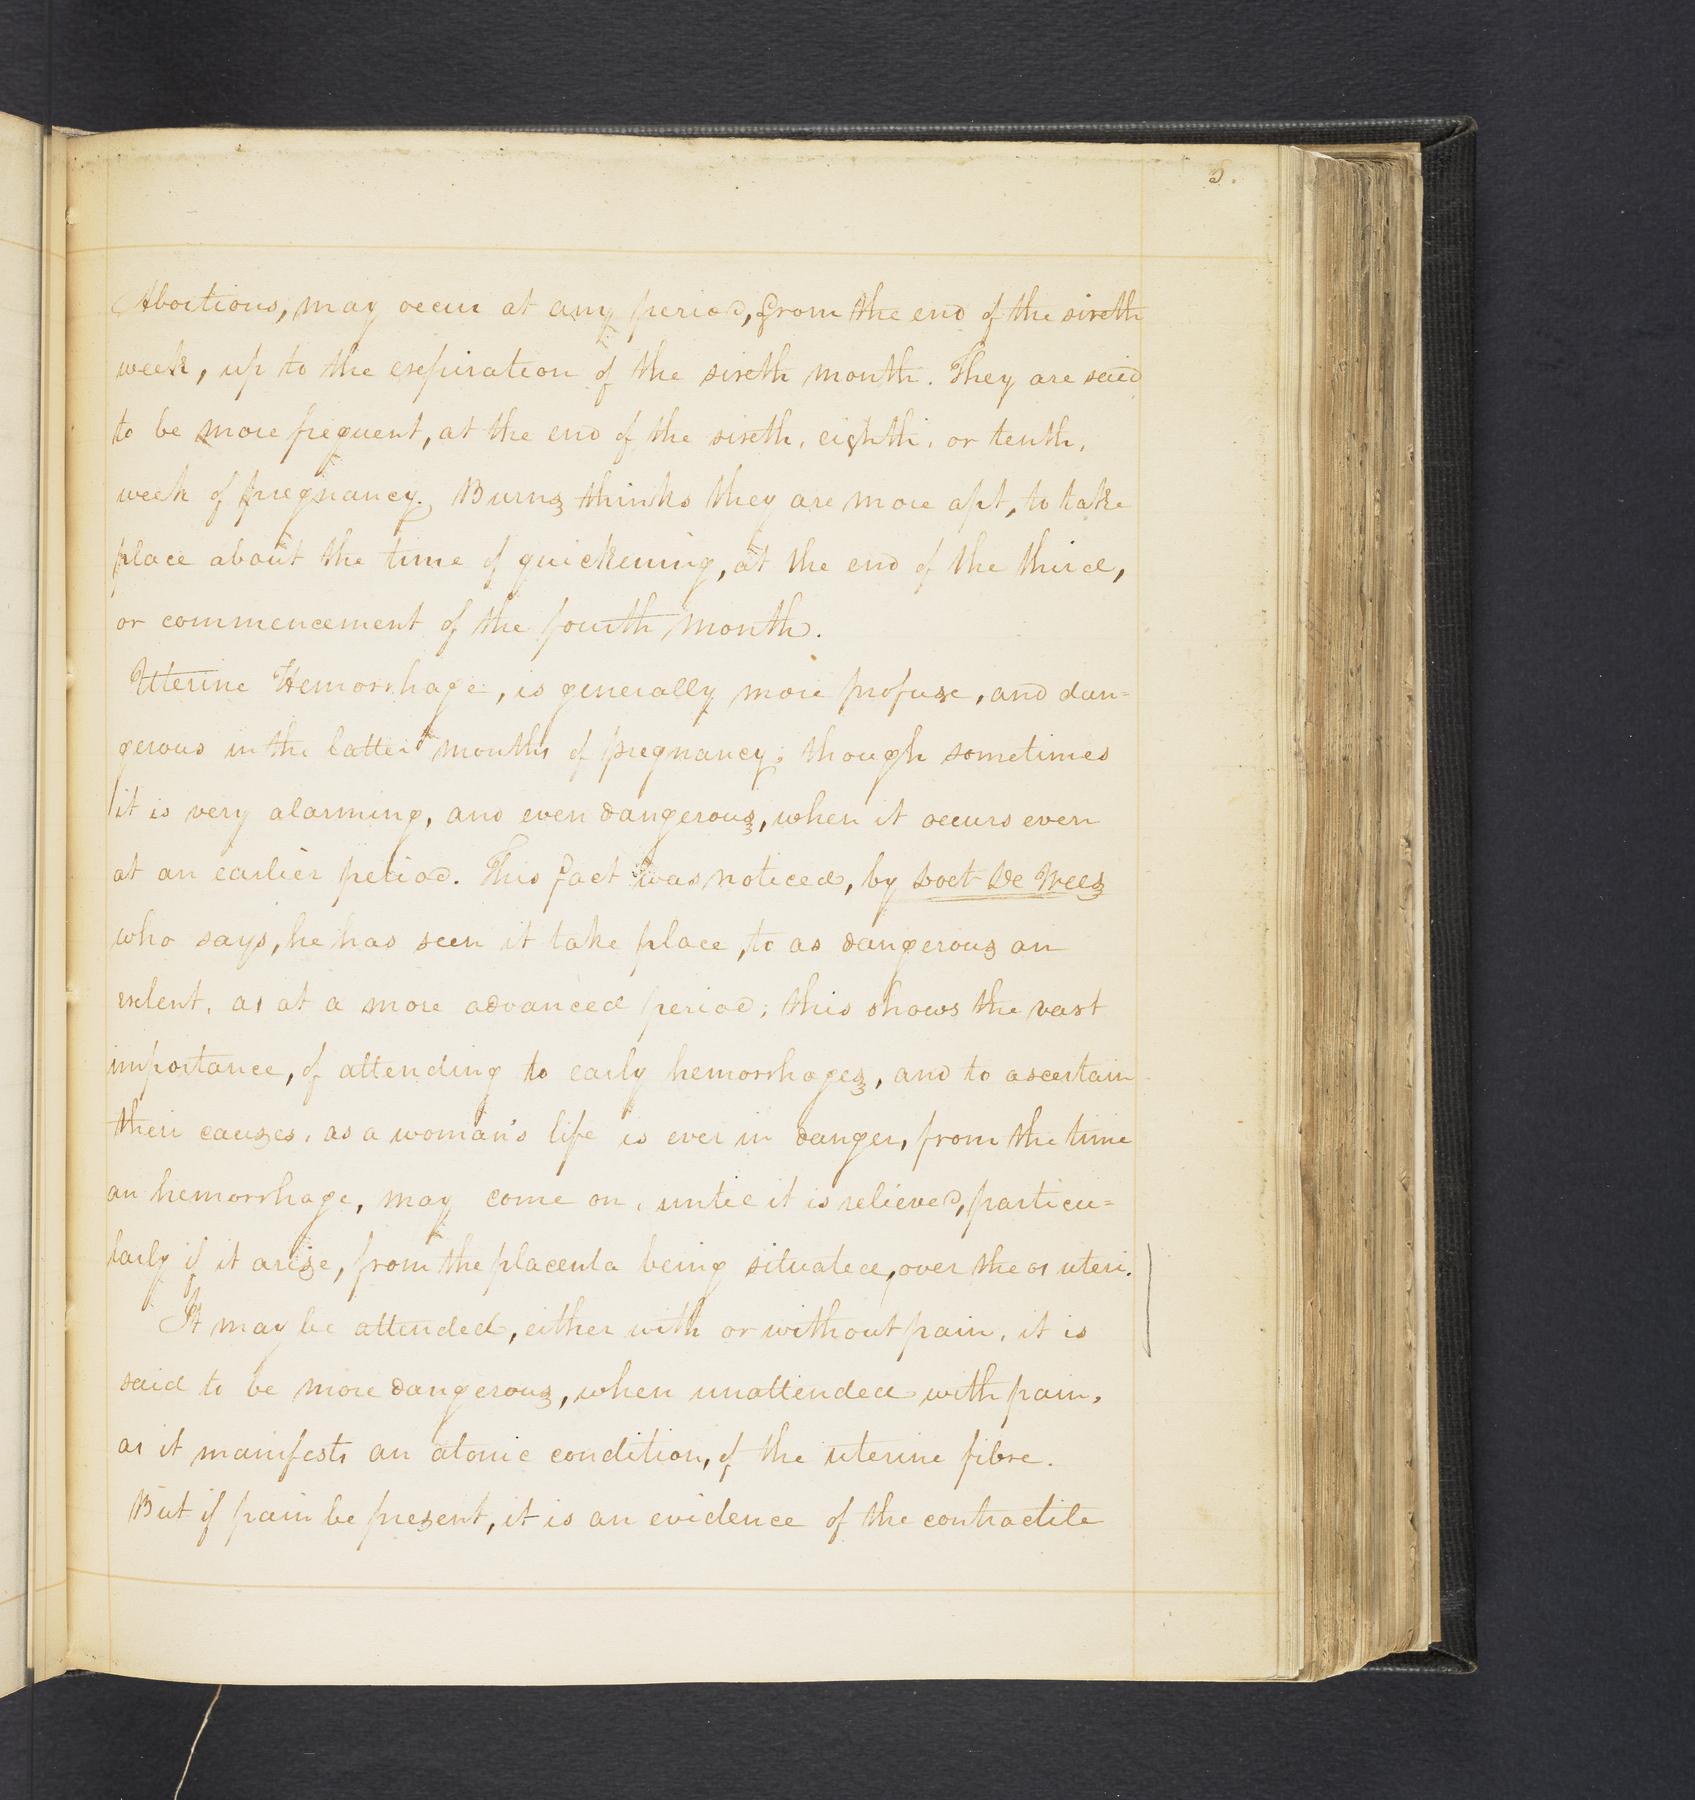 5.
Abortions, may occur at any period, from the end of the sixth
week, up to the expiration of the sixth month. They are said
to be more frequent, at the end of the sixth, eighth, or tenth,
week of pregnancy. Burns thinks they are more apt, to take
place about the time of quickening, at the end of the third,
or commencement of the fourth month.
Uterine Hemorrhage, is generally more profuse, and dan=
gerous in the latter months of pregnancy, though sometimes
it is very alarming, and even dangerous, when it occurs even
at an earlier period. This fact was noticed, by Doct De Wees
who says, he has seen it take place, to as dangerous an
extent, as at a more advanced period; this shows the vast
importance, of attending to early hemorrhages, and to ascertain
their causes, as a woman's life is ever in danger, from the time
an hemorrhage, may come on, until it is relieved, particu=
larly if it arise, from the placenta being situated, over the os uteri.
It may be attended, either with or without pain, it is
said to be more dangerous, when unattended with pain,
as it manifests an atonic condition, of the uterine fibre.
But if pain be present, it is an evidence of the contractile